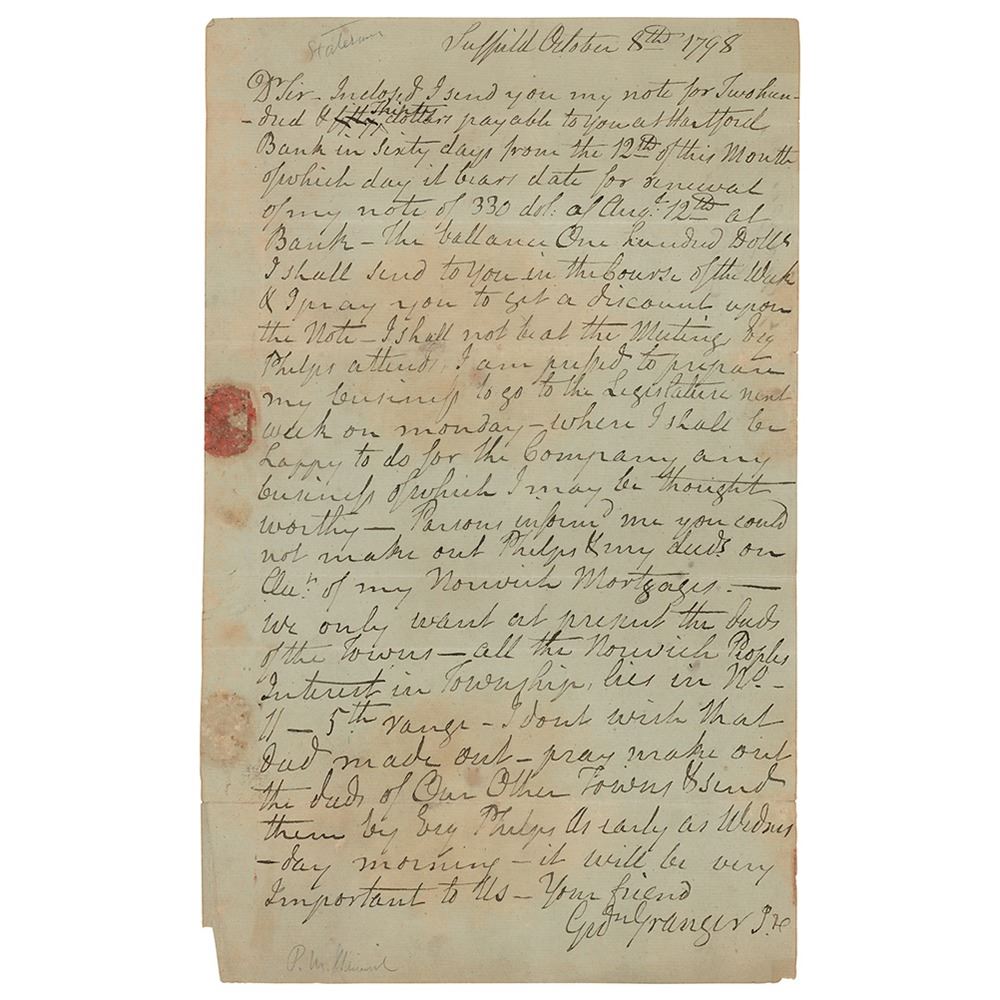 Statesman
Suffield October 8th 1798
Dr Sir - Inclosed I send you my note for Two hun-
-dred & fifty Thirty dollars payable to You at Hartford
Bank in Sixty days from the 12th of this Month
of which day it bears date for renewal
of my note of 330 dol: of Augt 12th at
Bank - The ballance One hundred Dolls
I shall send to You in the Course of the Week
& I pray you to get a discount upon
the Note - I shall not be at the Meeting, Esq
Phelps attends, I am pressd to prepare
my business to go to the Legislature next
week on monday - where I shall be
happy to do for the Company any
business of which I may be thought
worthy - Parsons informd me you could
not make out Phelps & my deeds on
of my Norwich Mortgages. -
we only want at present the deeds
of the Towns - all the Norwich Peoples
Interest in Township, lies in No -
11 - 5th range - I dont wish that
deed made out - pray make out
the deeds of Our Other Towns & send
them by Esq Phelps As early as Wednes
-day morning - it will be very
Important to Us - Your friend
Gidn Granger Jr
P. M. General